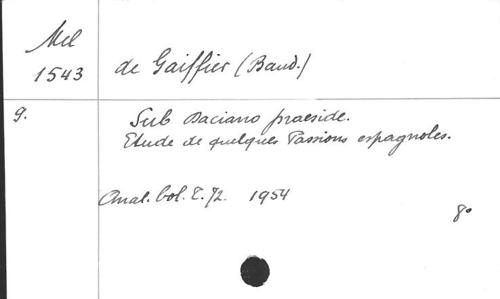 Mel
1543
de Gaiffier (Baud.)
9.
Sub Daciano praeside.
Etude de quelques Passions espagnoles.
Anal. bol. T. 72. 1954
8°